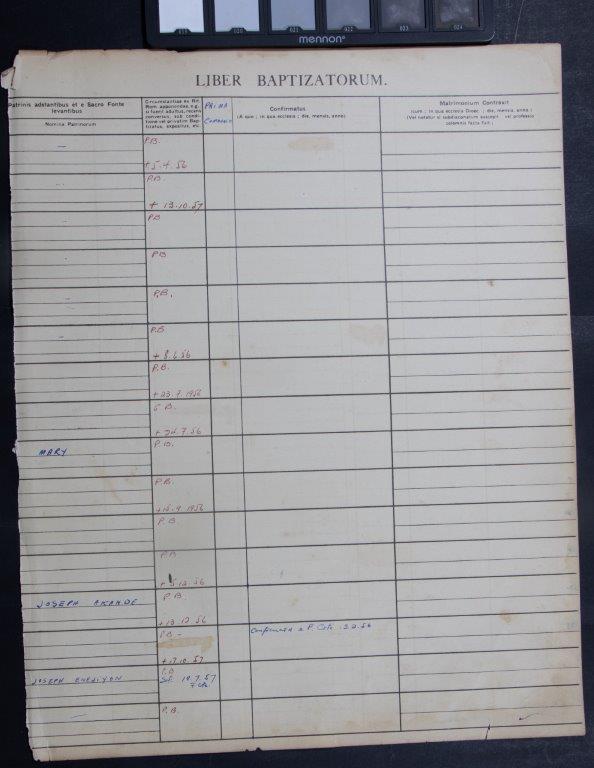 019 020 021 022 023 024
mennon
LIBER BAPTIZATORUM.
Patrinis adstantibus et e Sacro Fonte
levantibus
Nomina Patrinorum
Circumstantiae ex Rit.
Rom. apponendae, e.g.
si fuerit adultus, recens
conversus, sub condi-
tione vel privatim Bap-
tizatus, expositus, etc.
PRIMA
COMMUNIO
Confirmatus
(A quo ; in qua ecclesia ; die, mensis, anno)
Matrimonium Contraxit
(cum ; in qua ecclesia Dioec. ; die, mensis, anno.)
(Vel notatur si subdiaconatum suscepit vel professio
solemnis facta fuit.)
P.B.
—
+ 5.4.56
P.B.
—
+ 13.10.57
P.B
—
P.B
—
P.B.
—
P.B
—
+ 8.6.56
P.B.
+ 23.7.1956
P.B.
+ 24.7.56
P.B.
MARY
P.B.
+ 15.9.1956
P.B
P.B
+ 5.12.56
P.B.
JOSEPH AKANDE
+ 13.12.56
P.B -
Confirmed
+ 17.10.57
P.B
JOSEPH
10.7.57
P.B.
—